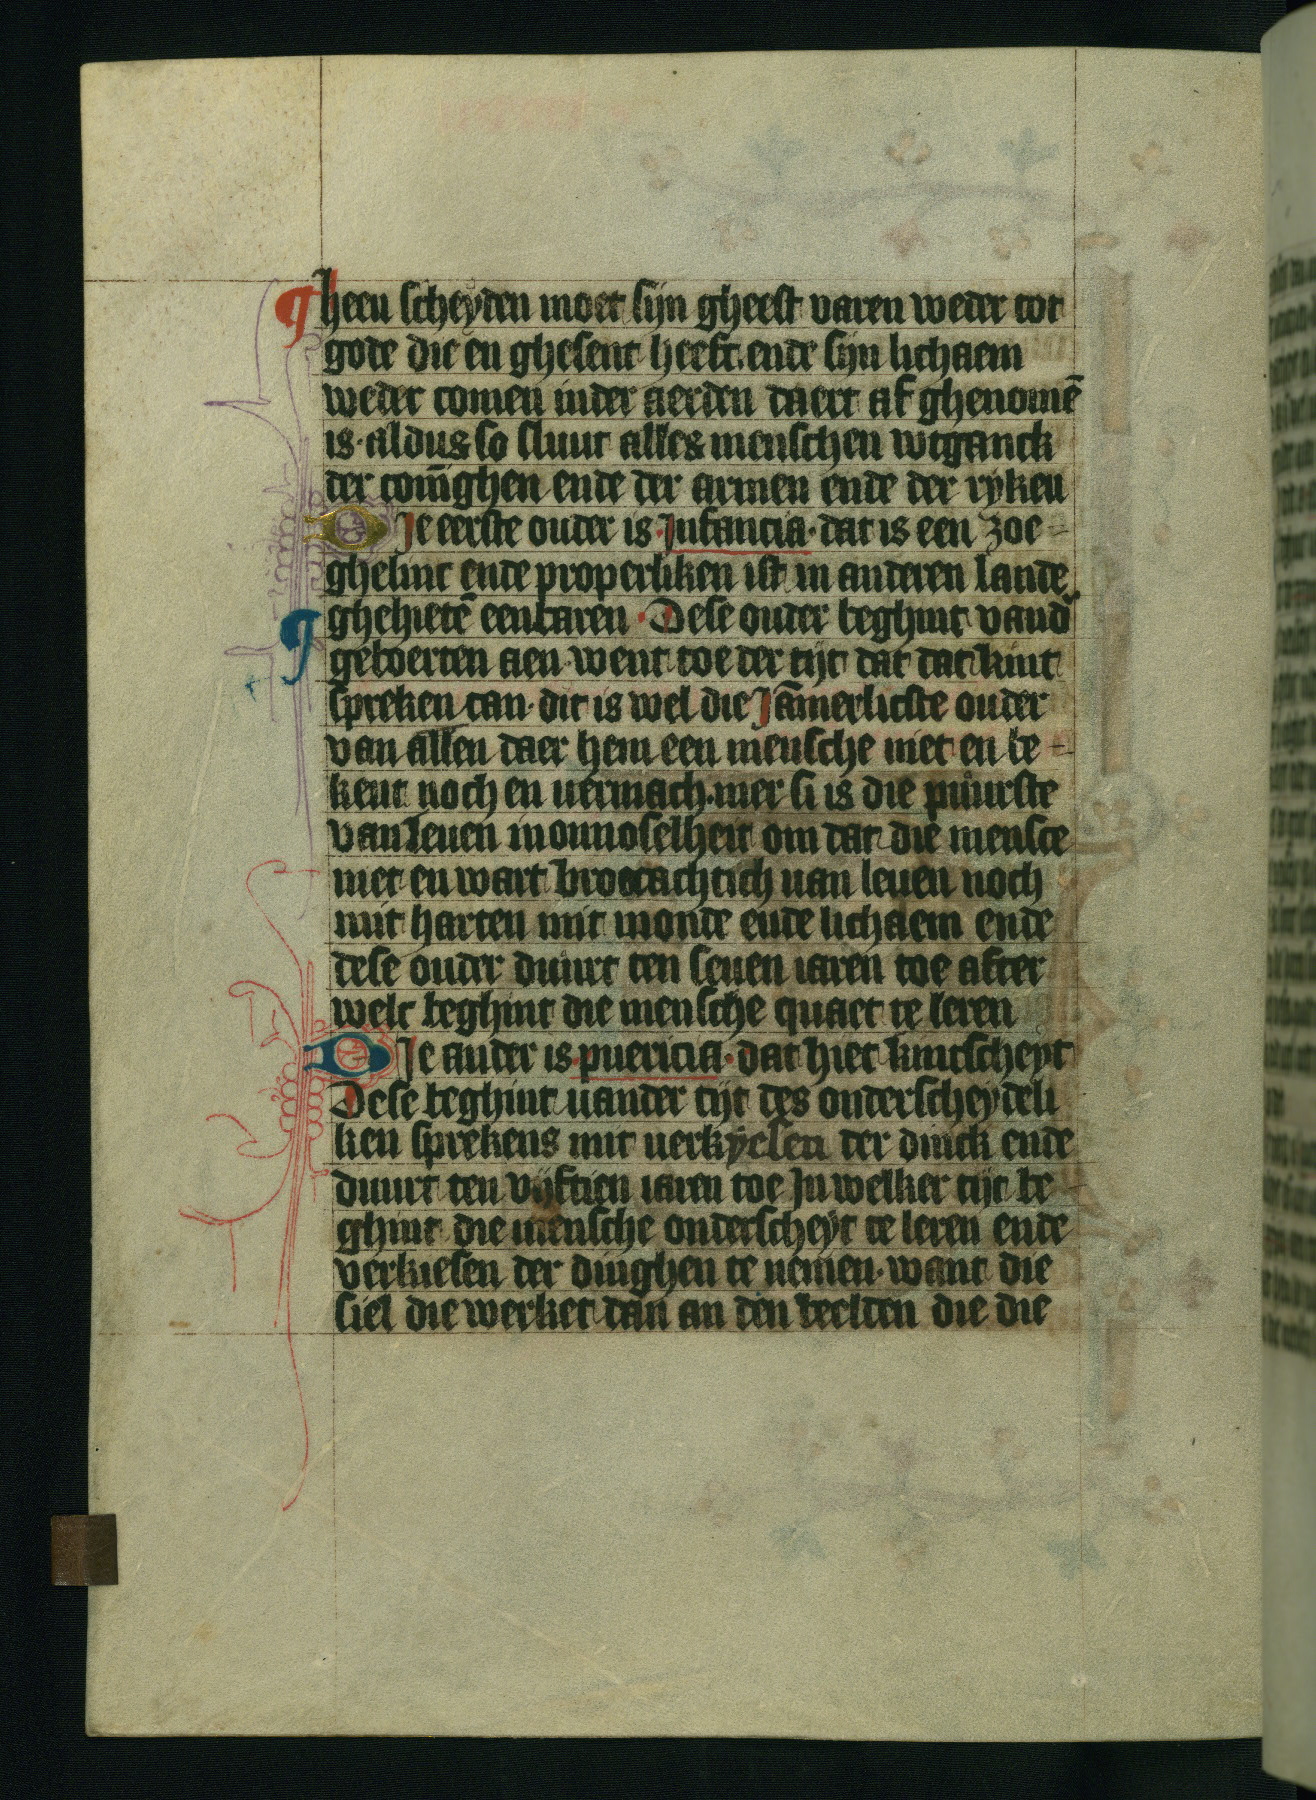 ¶ heen scheyden moet sijn gheest varen weder tot
gode die en ghesent heeft. ende sijn lichaem
weder comen inder aerden daert af ghenomē
is. aldus so sluut alles menschen wtganck
der coniīghen ende der armen ende der ryken
Die eerste ouder is. Infancia. dat is een zoe=
ghelinc ende properliken ist in anderen lande
ghehietē een baren. Dese ouder beghint vand̄
¶ geboerten aen. went toe der tijt dat dat kint
spreken can. dit is wel die Jāmerlicste ouder
van allen daer hem een mensche niet en be=
kent noch en vermach. mer si is die puurste
van leuen in onnoselheit om dat die mensce
niet en wart brocachtich van leuen noch
mit harten mit monde ende lichaem ende
dese ouder duurt ten seuen iaren toe after
welt beghint die mensche quaet te leren
Die ander is. puericia. dat hiet kintscheyt
Dese beghint vander tijt des onderscheydeli
ken sprekens mit verkyesen der dinck ende
duurt ten vijftien iaren toe In welker tijt be
ghint die mensche onderscheyt te leren ende
verkiesen der dinghen te nemen. want die
siel die werket dan an den beelden die die